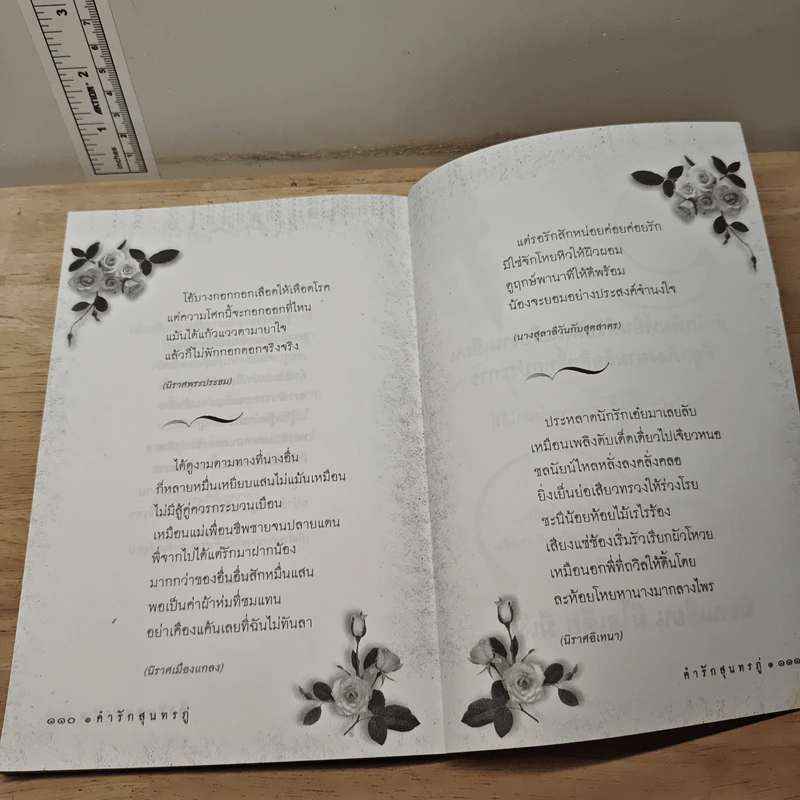 โอ้บางกอกกอกเลือดให้เหือดโรค
แต่ความโศกนี้จะกอกออกที่ไหน
แม้นได้แก้วแววตามายาใจ
แล้วก็ไม่พักกอกดอกจริงจริง
(นิราศพระประธม)
ได้ดูงามตามทางที่นางอื่น
ก็หลายหมื่นเหยียบแสนไม่แม้นเหมือน
ไม่มีสู้คู่ควรกระบวนเบือน
เหมือนแม่เพื่อนชีพชายจนปลายแดน
พี่จากไปได้แต่รักมาฝากน้อง
มากกว่าของอื่นอื่นสักหมื่นแสน
พอเป็นค่าผ้าห่มที่ชมแทน
อย่าเคืองแค้นเลยที่ฉันไม่ทันลา
(นิราศเมืองแกลง)
๑๑๐ ๏ คำรักสุนทรภู่
แต่รอรักสักหน่อยค่อยค่อยรัก
มิใช่จักโหยหิวให้ผิวผอม
ดูฤกษ์พานาทีให้ดีพร้อม
น้องจะยอมอย่างประสงค์จำนงใจ
(นางสุลาลีวันกับสุดสาคร)
ประหลาดนักรักเอ๋ยมาเลยลับ
เหมือนเพลิงดับเด็ดเดี่ยวไปเจียวหนอ
ชลนัยน์ไหลหลั่งลงคลั่งคลอ
ยิ่งเย็นย่อเสียวทรวงให้ร่วงโรย
ชะนีน้อยห้อยไม้เรไรร้อง
เสียงแซ่ซ้องเริ่มรัวเรียกผัวโหวย
เหมือนอกพี่ที่ถวิลให้ดิ้นโดย
ละห้อยโหยหานางมากลางไพร
(นิราศอิเหนา)
คำรักสุนทรภู่ ๏ ๑๑๑
inches
ARTION
1
2
3
1
2
3
4
5
6
7